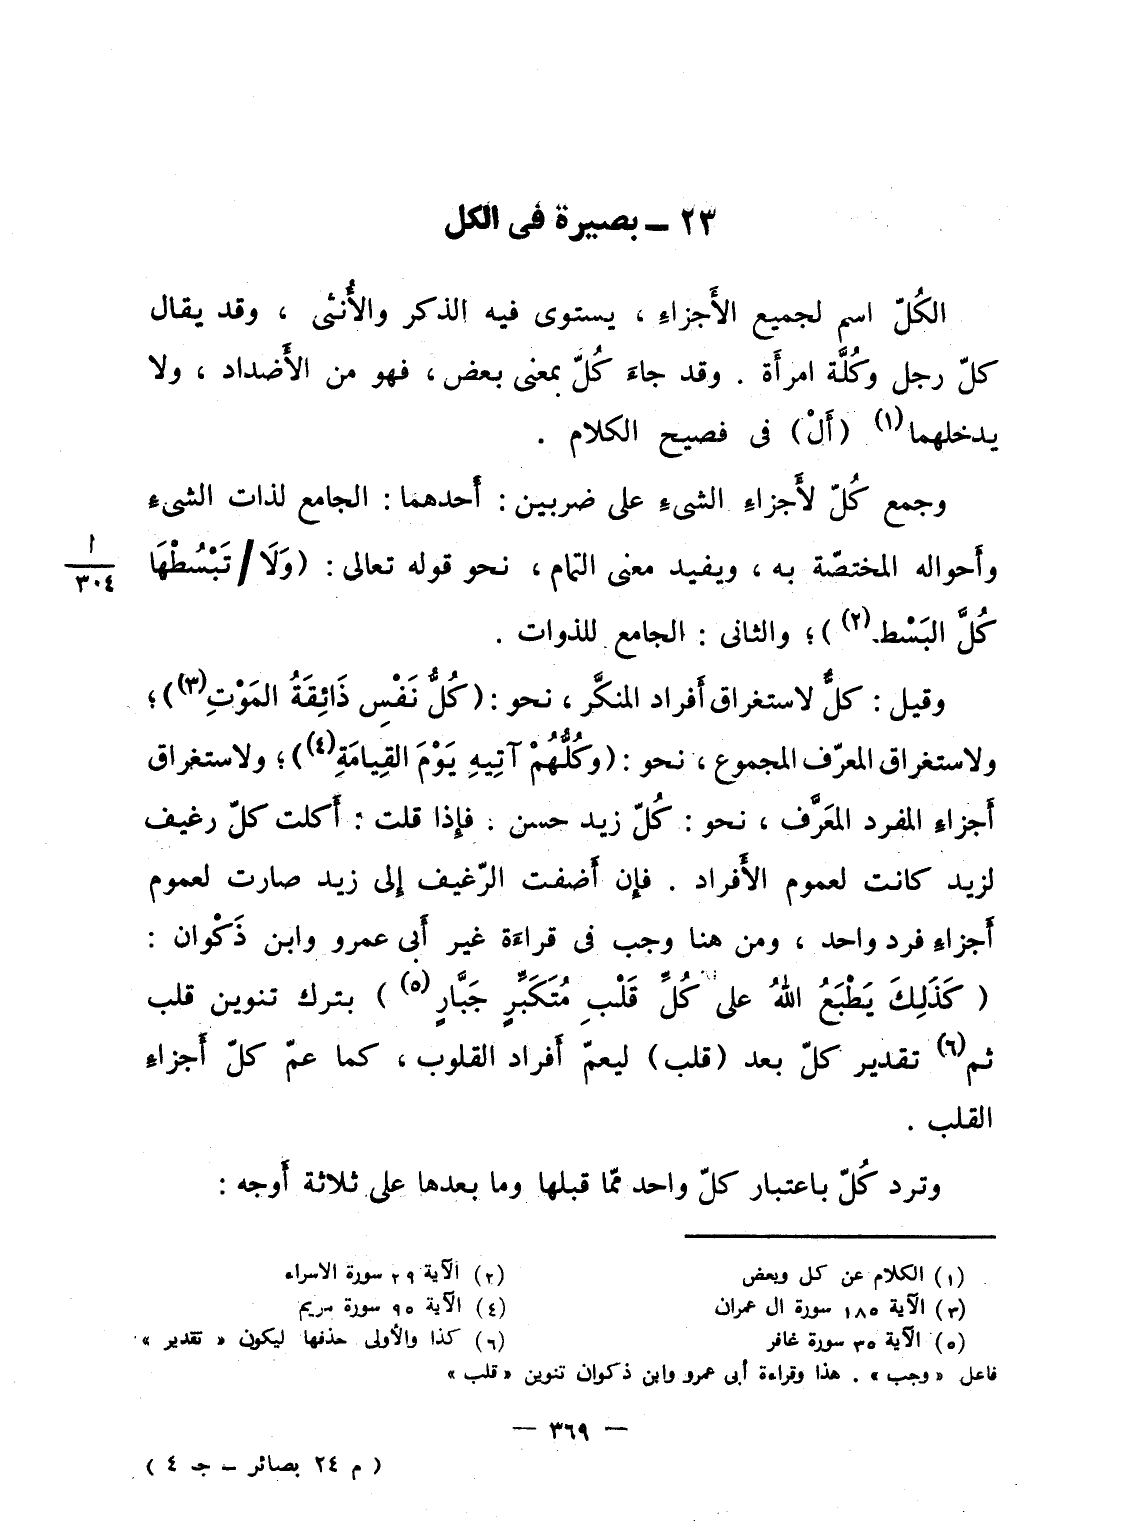 ٢٣ ــ بصيرة فى الكل
الكُلّ اسم لجميع الأَجزاءِ ، يستوى فيه الذكر والأُنثى ، وقد يقال
كلّ رجل وكُلَّة امرأَة . وقد جاءَ كُلّ بمعنى بعض ، فهو من الأَضداد ، ولا
يدخلهما(١) (أَلْ) فى فصيح الكلام .
وجمع كُلّ لأَجزاءِ الشىءِ على ضربين : أَحدهما : الجامع لذات الشىءِ
وأَحواله المختصّة به ، ويفيد معنى التمام ، نحو قوله تعالى : (وَلَا / تَبْسُطْهَا
ا
٣٠٤
كُلَّ البَسْط(٢)) ؛ والثانى : الجامع للذوات .
وقيل : كلٌّ لاستغراق أَفراد المنكَّر ، نحو : (كُلُّ نَفْسٍ ذَائِقَةُ المَوْتِ(٣)) ؛
ولاستغراق المعرّف المجموع ، نحو : (وكُلُّهُمْ آتِيهِ يَوْمَ القِيامَةِ(٤)) ؛ ولاستغراق
أَجزاءِ المفرد المعَرَّف ، نحو : كُلّ زيد حسن . فإِذا قلت : أَكلت كلّ رغيف
لزيد كانت لعموم الأَفراد . فإِن أَضفت الرّغيف إِلى زيد صارت لعموم
أَجزاءِ فرد واحد ، ومن هنا وجب فى قراءَة غير أَبى عمرو وابن ذَكْوان :
( كَذَلِكَ يَطْبَعُ اللهُ على كُلِّ قَلْبِ مُتَكَبِّرٍ جَبَّارٍ(٥) ) بترك تنوين قلب
ثم(٦) تقدير كلّ بعد (قلب) ليعمّ أَفراد القلوب ، كما عمّ كلّ أَجزاءِ
القلب .
وترد كُلّ باعتبار كلّ واحد ممّا قبلها وما بعدها على ثلاثة أَوجه :
(١) الكلام عن كل وبعض
(٢) الآية ٢٩ سورة الاسراء
(٣) الآية ١٨٥ سورة ال عمران
(٤) الآية ٩٥ سورة مريم
(٥) الآية ٣٥ سورة غافر
(٦) كذا والأولى حذفها ليكون « تقدير »
فاعل « وجب » . هذا وقراءة أبى عمرو وابن ذكوان تنوين « قلب »
— ٣٦٩ —
( م ٢٤ بصائر ــ جـ ٤ )